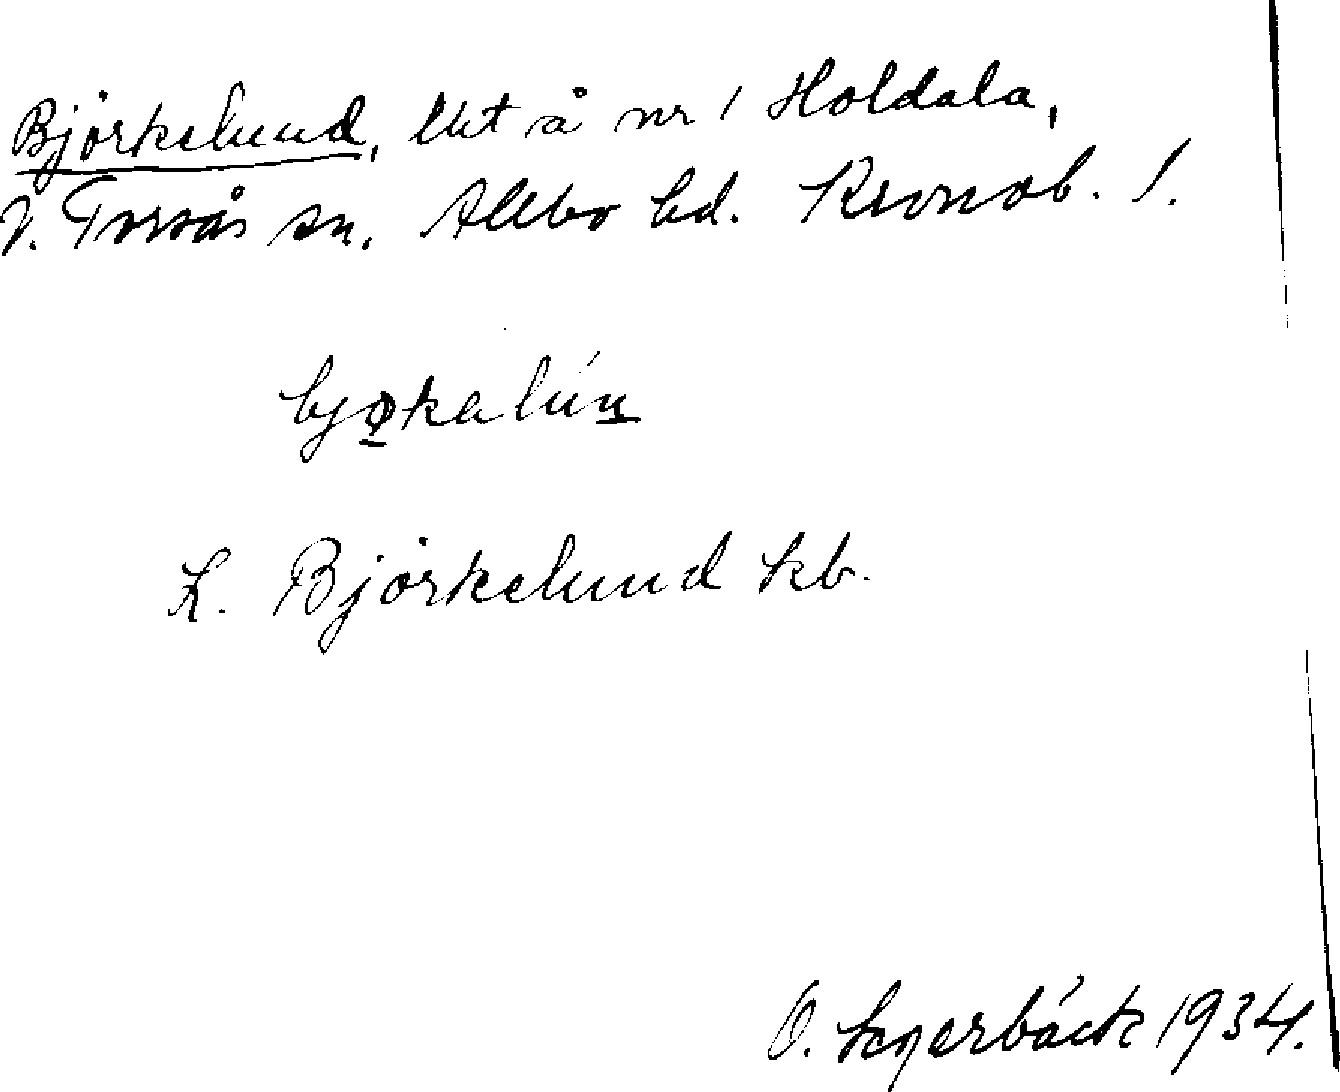 Björkelund, lht å nr 1 Holdala,
V. Torsås sn. Allbo hd. Kronob. l.
bjøkalún
L. Björkelund kb.
O. Lagerbäck 1934.